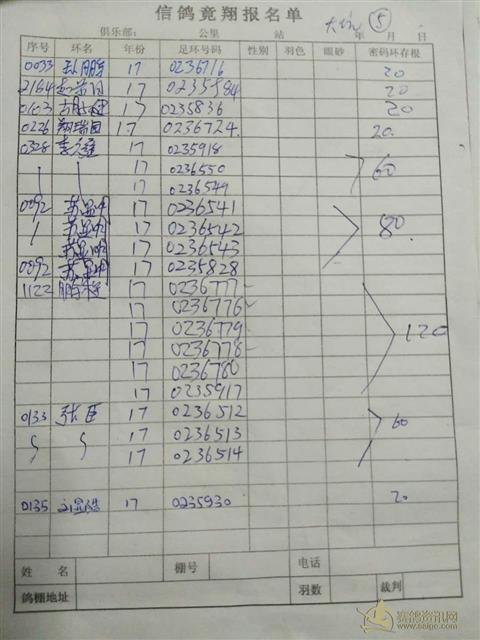 信鸽竞翔报名单
大坑 ⑤
俱乐部： 公里 站 年 月 日
序号 环名 年份 足环号码 性别 羽色 眼砂 密码环存根
0033 孙鹏 17 0236716 20
2164 17 0235984 20
0103 17 0235836 20
0226 翔瑞园 17 0236724 20
0328 李 17 0235918
17 0236550 60
17 0236549
0092 17 0236541
17 0236542 80
17 0236543
0092 17 0235828
1122 17 0236777
17 0236776
17 0236779 120
17 0236778
17 0236780
17 0235917
0133 张臣 17 0236512
17 0236513 60
17 0236514
0135 17 0235930 20
姓名 棚号 电话
鸽棚地址 羽数 裁判
赛鸽资讯网
www.saige.com